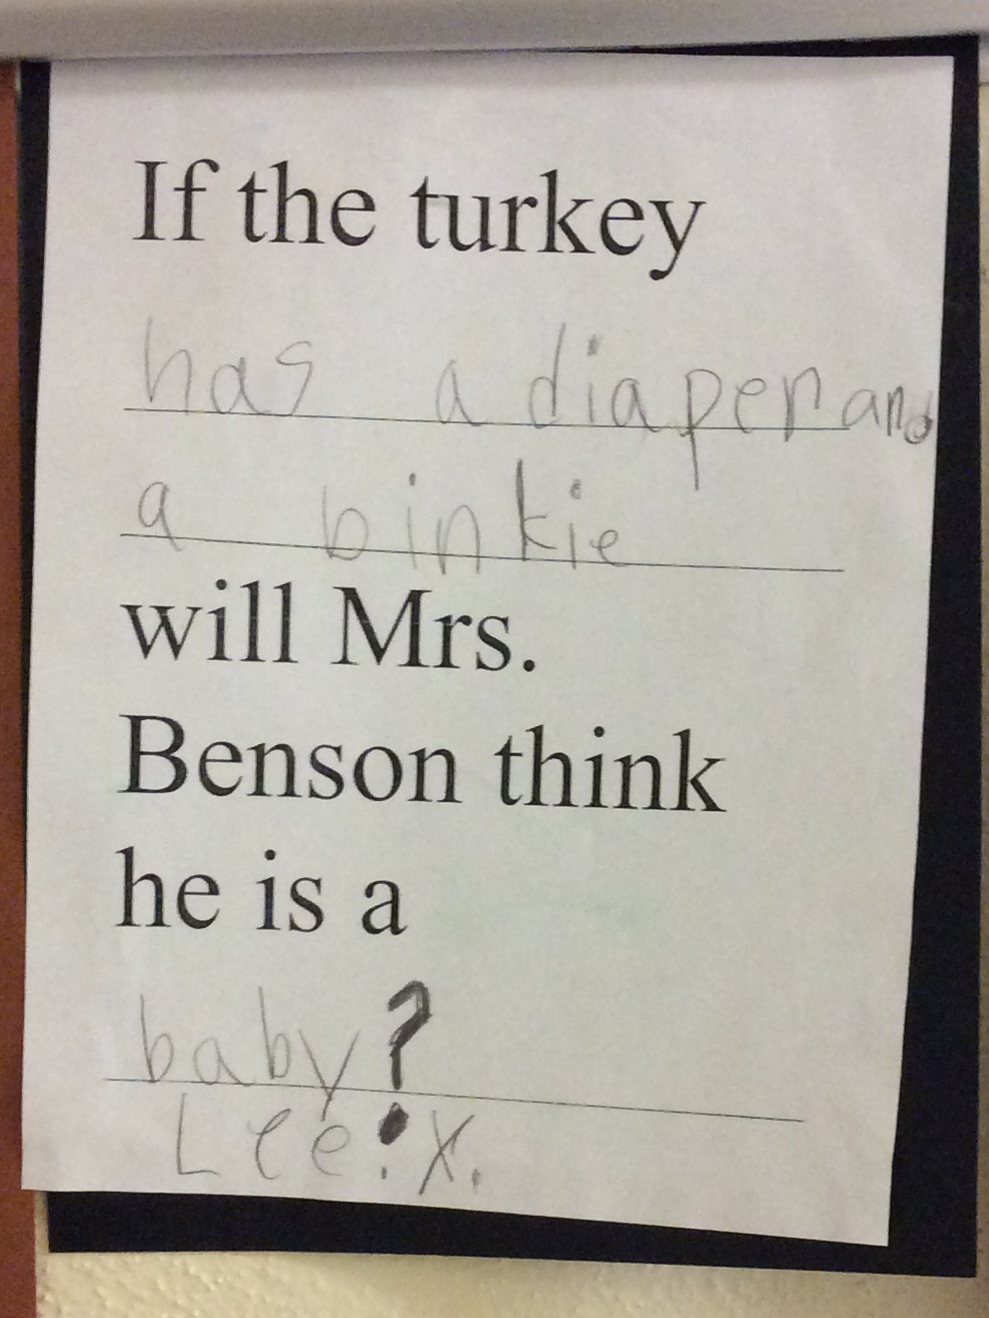 If the turkey
has a diaper and
a binkie
will Mrs.
Benson think
he is a
baby?
Lee. X.